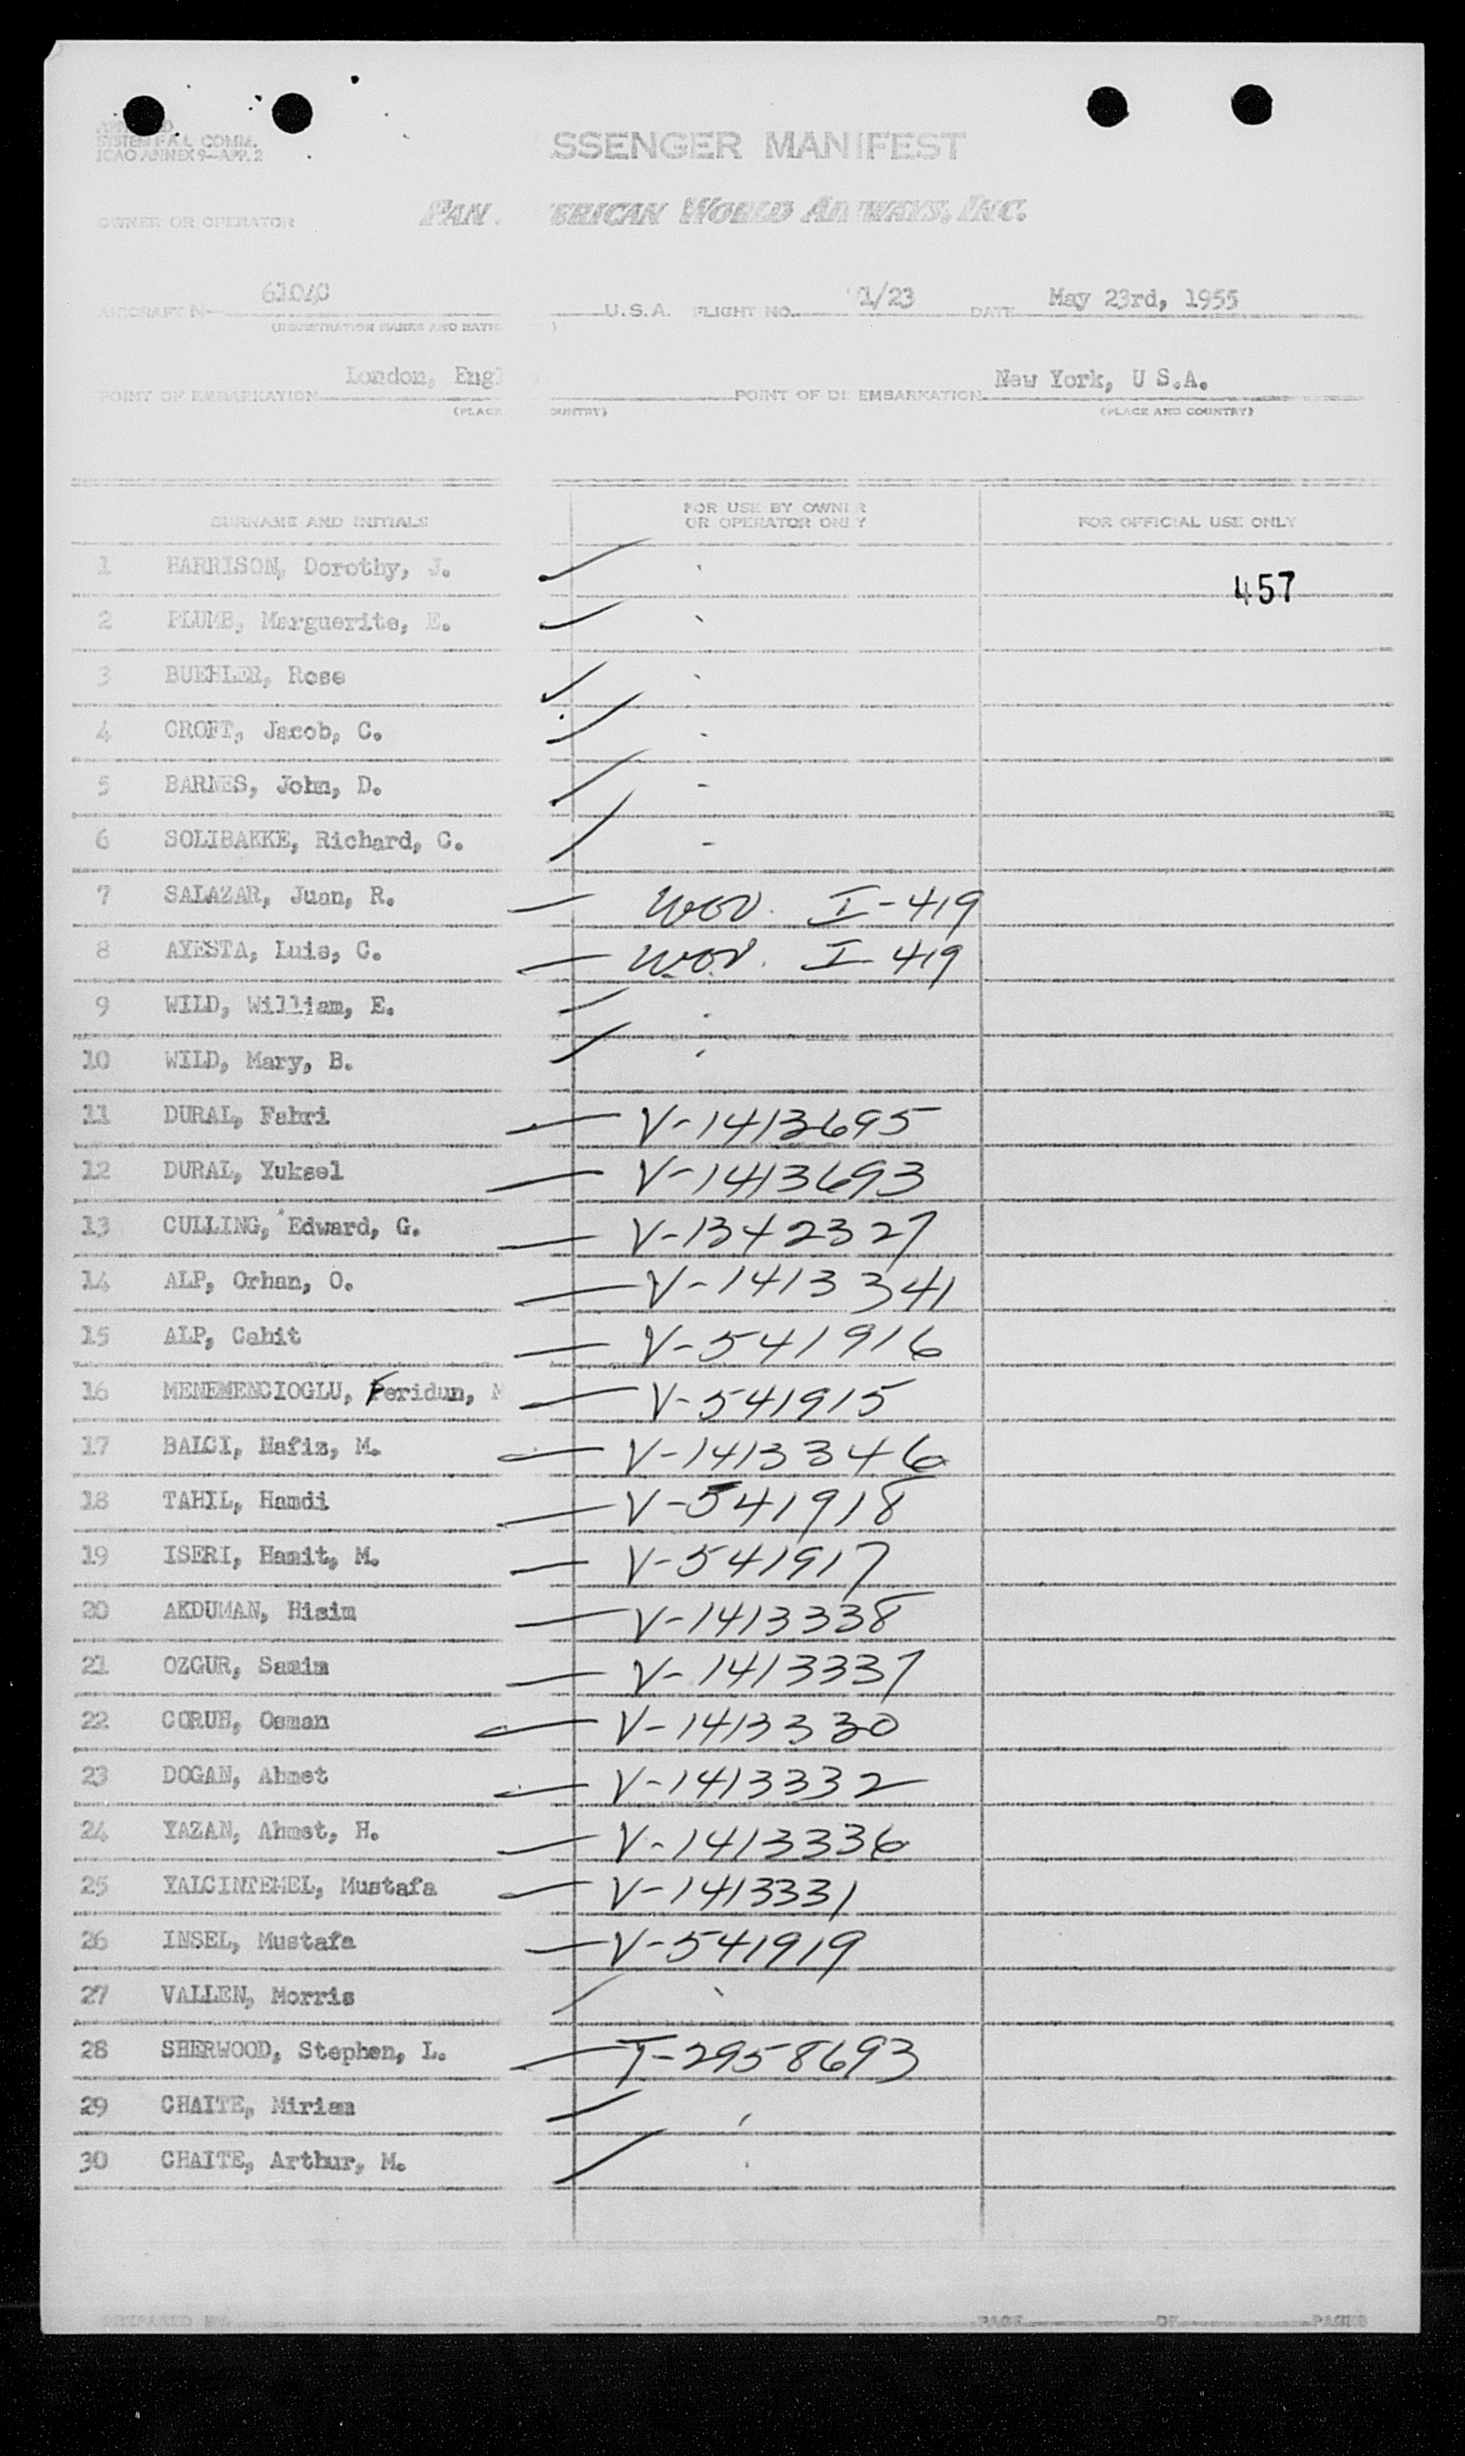 SYSTEM F.A.L. COMM.
ICAO ANNEX 9—APP. 2
SSENGER MANIFEST
OWNER OR OPERATOR PAN ERICAN WORLD AIRWAYS, INC.
AIRCRAFT N— U.S.A. FLIGHT NO. 1/23 DATE May 23rd, 1955
(REGISTRATION MARKS AND NATIO )
POINT OF EMBARKATION London, Engl POINT OF DI EMBARKATION New York, U S.A.
(PLACE OUNTRY) (PLACE AND COUNTRY)
SURNAME AND INITIALS FOR USE BY OWNER OR OPERATOR ONLY FOR OFFICIAL USE ONLY
1 HARRISON, Dorothy, J.
457
2 PLUMB, Marguerite, E.
3 BUEHLER, Rose
4 CROFT, Jacob, C.
5 BARNES, John, D.
6 SOLIBAKKE, Richard, C.
7 SALAZAR, Juan, R. — WOV. I-419
8 AYESTA, Luis, C. — WOV. I-419
9 WILD, William, E.
10 WILD, Mary, B.
11 DURAL, Fahri — V-1413695
12 DURAL, Yuksel — V-1413693
13 CULLING, Edward, G. — V-1342327
14 ALP, Orhan, O. — V-1413341
15 ALP, Cahit — V-541916
16 MENEMENCIOGLU, Feridun, M — V-541915
17 BALCI, Nafiz, M. — V-1413346
18 TAHIL, Hamdi — V-541918
19 ISERI, Hamit, M. — V-541917
20 AKDUMAN, Hisim — V-1413338
21 OZGUR, Samim — V-1413337
22 CORUH, Osman — V-1413330
23 DOGAN, Ahmet — V-1413332
24 YAZAN, Ahmet, H. — V-1413336
25 YALCINTEMEL, Mustafa — V-1413331
26 INSEL, Mustafa — V-541919
27 VALLEN, Morris
28 SHERWOOD, Stephen, L. — T-2958693
29 CHAITE, Miriam
30 CHAITE, Arthur, M.
PREPARED BY PAGE OF PAGES